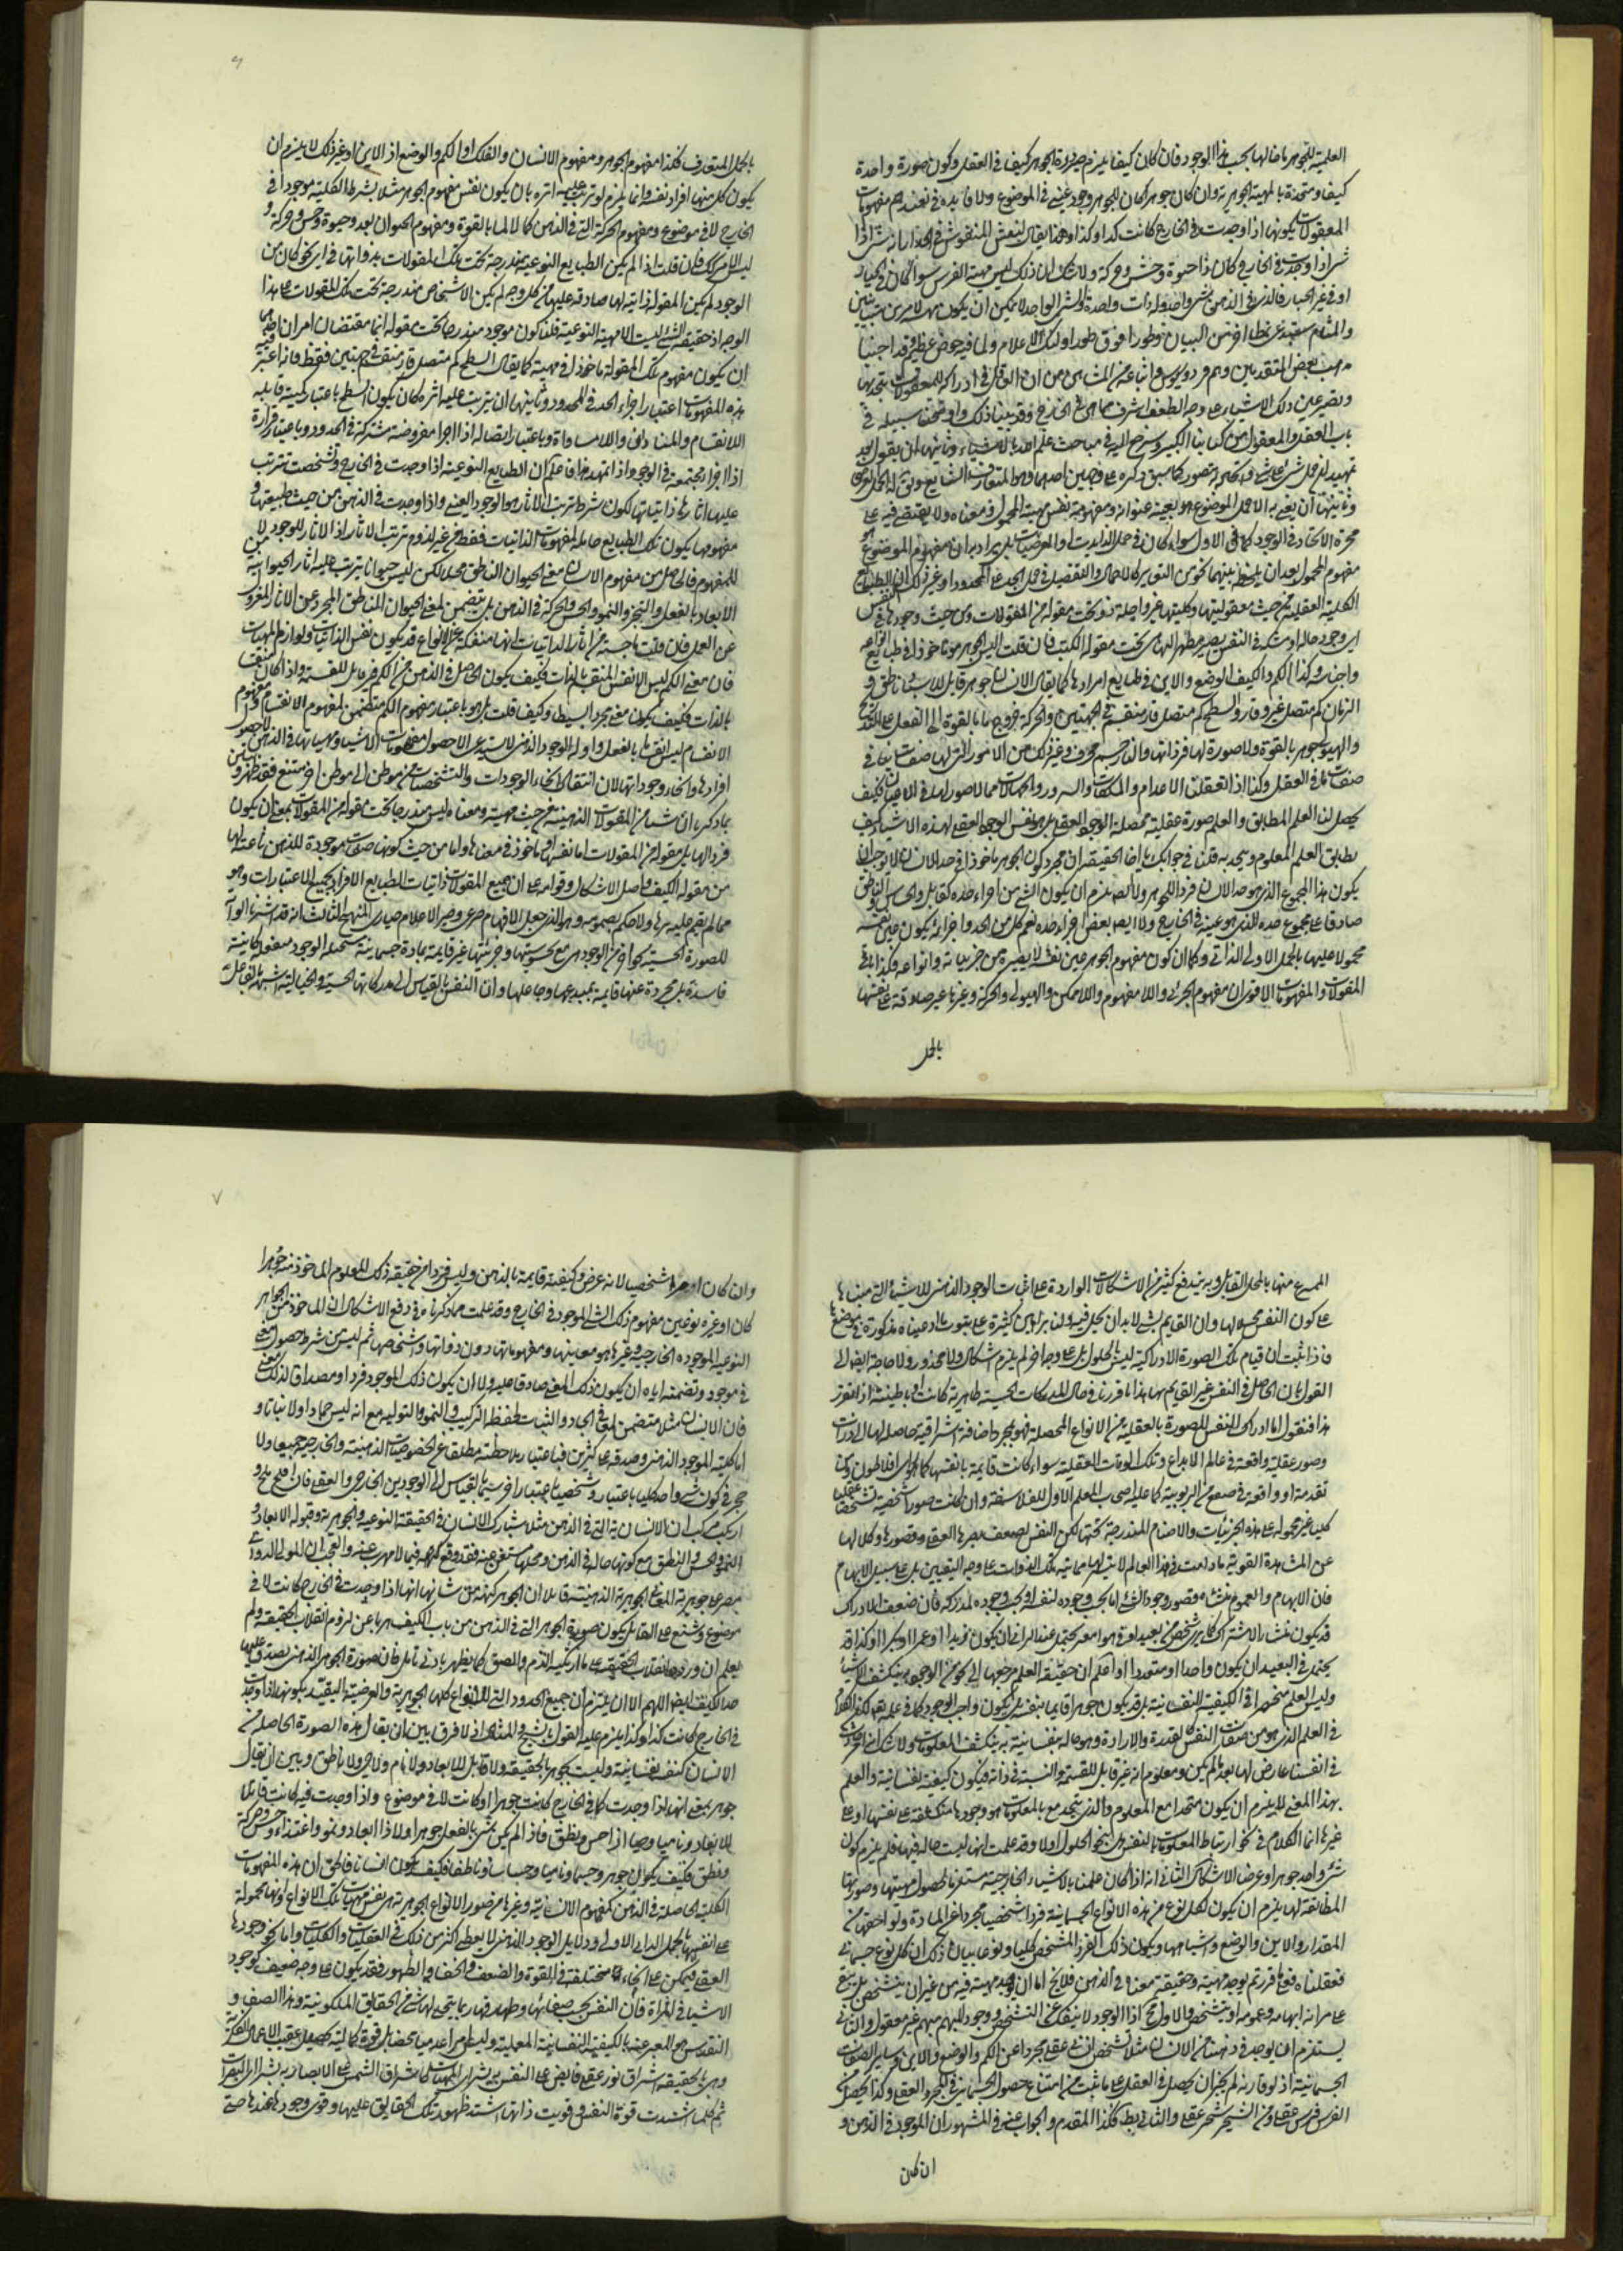 العلمية للجوهر باضالها بحسب هذا الوجود فان كان كيفا يلزم صيرورة الجوهر كيفا في العقل وكون صورة واحدة
كيفا ومتحدة بالمهية الجوهرية وان كان جوهرا كان للجوهر وجود عيني في الموضوع ولا فايدة في تغييرهم مفهومات
المعقولات بكونها اذا وجدت في الخارج كانت كذا وكذا وهذا يقال لنقش المنقوش في الجدار انه
اذا وجدت في الخارج كان ذا حيوة وحس وحركة ولا شك ان ذلك ليس مهية الفرس سواء كان في الجدار
او في غير الجدار فالذي في الذهن شيء واحد وله ذات واحدة والشيء الواحد لا يمكن ان يكون مهية لامرين متباينين
والمقام يستدعي نمطا اخر من البيان وطورا فوق طور اولئك الاعلام ولما فيه خوض عظيم وقد احيينا
مذهب بعض المتقدمين وهم فرفوريوس واتباعه من المشائين من ان العاقل في ادراكه للمعقولات يتحد بها
ويصير عين ذلك الاشياء على وجه الطف اشرف مما هي في الخارج وقد بينا ذلك واوضحنا سبيله في
باب العقل والمعقول من كتابنا الكبير وسنرجع اليه في مباحث علم الله بالاشياء وثانيهما ان يقول بعد
تمهيد ان حمل شيء على شيء يتصور كما سبق ذكره على وجهين احدهما وهو المتعارف الشايع
وثانيهما ان يعني به ان الموضوع هو بعينه عنوانه ومفهومه نفس مهية المحمول ومعناه ولا يقتصر فيه على
مجرد الاتحاد في الوجود كما في الاول سواء كان في حمل الذاتيات او العرضيات بل يراد به ان مفهوم الموضوع هو
مفهوم المحمول بعد ان يلحظ بينهما نحو من التغاير كالاجمال والتفصيل في حمل الحد على المحدود او غير ذلك ان الطبايع
الكلية العقلية من حيث معقوليتها وكليتها غير داخلة تحت مقولة من المقولات ومن حيث وجودها في النفس
اي وجود حالة او ملكة في النفس يصير مظهرا لها تحت مقولة الكيف فان قلت اليس الجوهر ماخوذا في طبايع انواعه
واجناسه وكذا الكم والكيف والوضع والاين في طبايع افرادها كما يقال الانسان جوهر قابل للابعاد ناطق و
الزمان كم متصل غير قار والسطح كم متصل قار منقسم في الجهتين والحركة خروج ما بالقوة الى الفعل على التدريج
والهيولى جوهر بالقوة ولا صورة لها في ذاتها
صفات ما في العقل وكذا اذا تعقلنا الاعدام والملكات فكيف
يحصل لنا العلم المطابق والعلم صورة عقلية محصلة الوجود العقلي بل هو نفس الوجود العقلي لهذه الاشياء فكيف
يطابق العلم المعلوم ويتحد به قلنا في جوابك يا اخا الحقيقة ان مجرد كون الجوهر ماخوذا في حد الانسان لا يوجب ان
يكون هذا المجموع الذي هو حد الانسان فردا للجوهر ولا ايضا يلزم ان يكون الشيء من اجزاء حده كقابل وحساس وناطق
صادقا على مجموع حده الذي هو عينه في الخارج ولا ايضا بعض اجزاء حده نعم كل من الحد واجزائه يكون عين نفسه
محمولا عليها بالحمل الاولي الذاتي وكما ان كون مفهوم الجوهر عين نفسه لا يصيره من جزئياته وانواعه فكذا باقي
المقولات والمفهومات الا ترى ان مفهوم الجزئي واللا مفهوم واللا ممكن والهيولى والحركة وغيرها غير صادقة على نفسها
بالحمل
٦
بالحمل المتعارف فكذا مفهوم الجوهر ومفهوم الانسان والفلك او الكم والوضع او الاين او غير ذلك لا يلزم ان
يكون كل منها افراد نفسه وانما يلزم لو ترتب عليه اثره بان يكون نفس مفهوم الجوهر مثلا بشرط الكلية موجودا في
الخارج لا في موضوع ومفهوم الحركة التي في الذهن كمالا لما بالقوة ومفهوم الحيوان ابعد وحيوة وحس وحركة و
ليس الامر كذلك فان قلت اذا لم يكن الطبايع النوعية مندرجة تحت تلك المقولات بذواتها في اي نحو كان من
الوجود لم يكن المقولة ذاتية لها صادقة عليها في كل وجه لم يكن الاشخاص مندرجة تحت تلك المقولات على هذا
الوجه اذ حقيقة الشيء ليست الا مهية النوعية قلنا كون موجود مندرجا تحت مقولة انما مقتضاه امران احدهما
ان يكون مفهوم تلك المقولة ماخوذا في مهيته كما يقال السطح كم متصل قار منقسم في جهتين فقط فانه اعتبر فيه
هذه المفهومات اعتبار اجزاء الحد في المحدود وثانيهما ان يترتب عليه اثره كان يكون السطح باعتبار كميته قابلا
للانقسام والمساواة واللامساواة وباعتبار اتصاله ذا اجزاء مفروضة مشتركة في الحدود وباعتبار قراره
ذا اجزاء مجتمعة في الوجود واذا تمهد هذا فاعلم ان الطبايع النوعية اذا وجدت في الخارج وتشخصت تترتب
عليها اثار ذاتياتها لكون شرط ترتب الاثار هو الوجود العيني واذا وجدت في الذهن من حيث طبيعتها و
مفهومها يكون تلك الطبايع حاملة لمفهومات الذاتيات فقط من غير لزوم ترتب الاثار اذ الاثار للوجود لا
للمفهوم فالحاصل من مفهوم الانسان معنى الحيوان الناطق مجملا لكن ليس حيوانا يترتب عليه اثار الحيوانية من
الابعاد بالفعل والتحيز والنمو والحس والحركة في الذهن بل يتضمن لمعنى الحيوان الناطق المجرد عن الاثار المعزول
عن العمل فان قلت ما حسبته من اثار الذاتيات انها منفكة عن الانواع قد يكون نفس الذاتيات ولوازم المهيات
فان معنى الكم ليس الا نفس المنقسم بالذات فكيف يكون الحاصل في الذهن من الكم غير قابل للقسمة واذا كان منقسما
بالذات فكيف يكون معنى مجردا بسيطا وكيف قلت بل هو باعتبار مفهوم الكم متضمن لمفهوم الانقسام ومفهوم
الانقسام ليس انقساما بالفعل وادلة الوجود الذهني لا يستدعي الا حصول مفهومات الاشياء ومهياتها في الذهن لا حصول
افرادها وانحاء وجوداتها لان انتقال انحاء الوجودات والتشخصات من موطن الى موطن اخر ممتنع فقد ظهر وتبين
بما ذكرناه ان شيئا من المعقولات الذهنية من حيث مهيته ومعناه ليس مندرجا تحت مقولة من المقولات بمعنى ان يكون
فردا لها بل مقولة من المقولات اما نفسها او ماخوذ في معناها واما من حيث كونها صفات موجودة للذهن ناعتة لها
من مقولة الكيف واصل الاشكال وقوامه على ان جميع المقولات ذاتيات لطبايع الافراد بجميع الاعتبارات وهو
مما لم يقم عليه برهان ولا حكم بصحته وهو الذي جعل الافهام صرعى وصير الاعلام حيارى المنهج الثالث انه قد اشرنا الى ان
للصورة الحسية نحوا اخر من الوجود هي مع محسوسيتها وجزئيتها غير قايمة بمادة جسمانية مستحيلة الوجود كاينة
فاسدة بل مجردة عنها قايمة بمبدعها وجاعلها وان النفس بالقياس الى مدركاتها الحسية والخيالية اشبه بالفاعل
المبدع منها بالمحل القابل وبه يندفع كثير من الاشكالات الواردة على اثبات الوجود الذهني للاشياء التي مبناها
على كون النفس محلا لها وان القيام بشيء لا بد ان يحل فيه ولنا براهين كثيرة على ثبوت ما ادعيناه مذكورة في موضعها
فاذا ثبت ان قيام تلك الصورة الادراكية ليس بالحلول بل على وجه اخر لم يلزم اشكال ولا محذور ولا حاجة ايضا الى
القول بان الحاصل في النفس غير القايم بها هذا ما قررنا في حال المدركات الحسية ظاهرية كانت او باطنية اذا تقرر
هذا فنقول اما ادراك النفس للصورة العقلية من الانواع المحصلة فهو بمجرد اضافة اشراقية حاصلة لها الى ذوات
وصور عقلية واقعة في عالم الابداع وتلك الذوات العقلية سواء كانت قايمة بانفسها كما هو راي افلاطون ومن
تقدمه او واقعة في صقع من الربوبية كما عليه اصحاب المعلم الاول للفلاسفة وان كانت صورا شخصية متشخصة
كليا غير محمولة على هذه الجزئيات والاصنام المندرجة تحتها لكن النفس لضعف بصرها العقلي وقصورها وكلالها
عن المشاهدة القوية ما دامت في هذا العالم لا يتيسر لها مشاهدة تلك الذوات على وجه التعيين بل على سبيل الابهام
فان الابهام والعموم منشاه قصور وجود الشيء اما بحسب وجوده لنفسه او بحسب وجوده لمدركه فان ضعف الادراك
قد يكون منشا الاشتراك كما يرى شخص من بعيد او في هواء مغبر يحتمل عند الرائي ان يكون زيدا او عمرا او بكرا او كذا قد
يحتمل في البعيد ان يكون واحدا او متعددا واعلم ان حقيقة العلم مرجعها الى نحو من الوجود به ينكشف الاشياء
وليس العلم منحصرا في الكيفية النفسانية بل قد يكون جوهرا قايما بنفسه بل يكون واجب الوجود كما في علمه تعالى
في العلم الذي هو من صفات النفس كالقدرة والارادة وهو حالة نفسانية به ينكشف المعلومات ولا شك انها حاصلة
في انفسنا عارض لها بعد ما لم يكن ومعلوم انه غير قابل للقسمة والنسبة في ذاته فيكون كيفية نفسانية والعلم
بهذا المعنى لا يلزم ان يكون متحدا مع المعلوم والذي يتحد مع المعلومات هو وجودها منكشفة على نفسها او على
غيرها انما الكلام في نحو ارتباط المعلومات بالنفس هل بنحو الحلول اولا وقد علمت انها ليست حالة فيها فلم يلزم كون
شيء واحد جوهرا وعرضا الاشكال الثاني انه اذا كان علمنا بالاشياء الخارجية مستلزما لحصول مهيتها وصورتها
المطابقة لها يلزم ان يكون لكل نوع من هذه الانواع الجسمانية فردا شخصيا مجردا عن المادة ولواحقها من
المقدار والاين والوضع واشباهها ويكون ذلك الفرد المتشخص كليا ونوعا بيان ذلك ان كل نوع جسماني
تعقلناه فعلى ما قرر تم يوجد مهيته وحقيقة معناه في الذهن فلا يخ اما ان يوجد مهيته فيه من غير ان يتشخص بل يبقى
على صرافة ابهامه وعمومه او يتشخص والاول مح اذ الوجود لا ينفك عن التشخص ووجود المبهم مبهم غير معقول والثاني
يستلزم ان يوجد في ذهننا من الانسان مثلا شخص انساني عقلي مجرد عن الكم والوضع والاين وساير الصفات
الجسمانية اذ لو قارنه لم يجز ان يحصل في العقل على ما ثبت من امتناع حصول الجسماني في المجرد العقلي وكذا يحصل من
الفرس فرس عقلي ومن الشجر شجر عقلي والتالي بط فكذا المقدم والجواب عنه في المشهور ان الموجود في الذهن و
ان كان
٧
وان كان امرا شخصيا لانه عرض وكيفية قايمة بالذهن وليس فردا من حقيقة ذلك المعلوم الماخوذ منه جوهرا
كان او غيره نعم عين مفهوم ذلك الشيء الموجود في الخارج وقد علمت مما ذكرناه في دفع الاشكال ان الماخوذ من الجواهر
النوعية الموجودة الخارجية وغيرها هو معانيها ومفهوماتها دون ذواتها واشخاصها ثم ليس من شرط حصول معنى
في موجود وتضمنه اياه ان يكون ذلك المعنى صادقا عليه ولا ان يكون ذلك الموجود فردا ومصداقا لذلك المعنى
فان الانسان مثلا متضمن لمعنى الجماد والنبات لحفظه التركيب والنمو والتوليد مع انه ليس جمادا ولا نباتا و
اما كلية الموجود الذهني وصدقه على كثيرين فباعتبار ملاحظته مطلقا عن الخصوصيات الذهنية والخارجية جميعا ولا
حجر في كون شيء واحد كليا باعتبار وشخصيا باعتبار اخر سيما بالقياس الى الوجودين الخارجي والعقلي فان الح ملح و
ارتكب مرتكب ان الانسانية التي في الذهن مثلا يشارك الانسان في الحقيقة النوعية والجوهرية وقبول الابعاد و
النمو والحس والنطق مع كونها حالة في الذهن ومحلها مستغن عنه فقد وقع فيما لا مهرب عنه والعجب ان المولى الدواني
مصر على جوهرية المعاني الجوهرية الذهنية قايلا ان الجوهر مهية من شانها انها اذا وجدت في الخارج كانت لا في
موضوع وشنع على القايل بكون صورة الجوهر التي في الذهن من باب الكيف هربا عن لزوم انقلاب الحقيقة ولم
يعلم ان ورود انقلاب الحقيقة على ما ارتكبه الزم والصق كما يظهر بادنى تامل فان صورة الجوهر الذهني يصدق عليها
حد الكيف ايضا اللهم الا ان يلتزم ان جميع الحدود التي للانواع كلها الجوهرية والعرضية التقييد بكونها اذا وجدت
في الخارج كانت كذا وكذا يلزم عليه القول بالشبح والمثال اذ لا فرق بين ان يقال هذه الصورة الحاصلة من
الانسان كيف نفسانية وليست بجوهر بالحقيقة ولا قابل للابعاد ولا نام ولا حي ولا ناطق وبين ان يقال
جوهر بمعنى انها اذا وجدت كما في الخارج كانت جوهرا او كانت لا في موضوع واذا وجدت فيه كانت قابلا
للابعاد وناميا وحيا اذا حس ونطق فاذا لم يكن شيء بالفعل جوهرا ولا ذا ابعاد ونمو واغتذاء وحس وحركة
ونطق فكيف يكون جوهر وجسما وناميا وحساسا وناطقا فكيف يكون انسانا فالحق ان هذه المفهومات
الكلية الحاصلة في الذهن كمفهوم الانسانية وغيرها من صور الانواع الجوهرية هي نفس مهيات تلك الانواع وانها محمولة
على انفسها بالحمل الذاتي الاولي ودلايل الوجود الذهني لا يعطي اكثر من ذلك في العقليات والكليات واما نحو وجودها
العقلي فيمكن على انحاء مختلفة في القوة والضعف والخفاء والظهور فقد يكون على وجه ضعيف كوجود
الاشياء في المراة فان النفس بحسب صفائها وطهارتها ربما يتجلى لها شيء من الحقايق الملكوتية وهذا الصفاء و
التقدس هو المعبر عنه بالكيفية النفسانية العلمية وليست امرا عدميا محضا بل قوة كمالية تحصل عقيب الاعمال الفكرية
وهي بالحقيقة اشراق نور عقلي فايض على النفس به يترائى المهيات كاشراق الشمس على الابصار به يترائى المبصرات
ثم كلما اشتدت قوة النفس وقويت ذاتها اشتد ظهور تلك الحقايق عليها وقوي وجودها عندها حتى